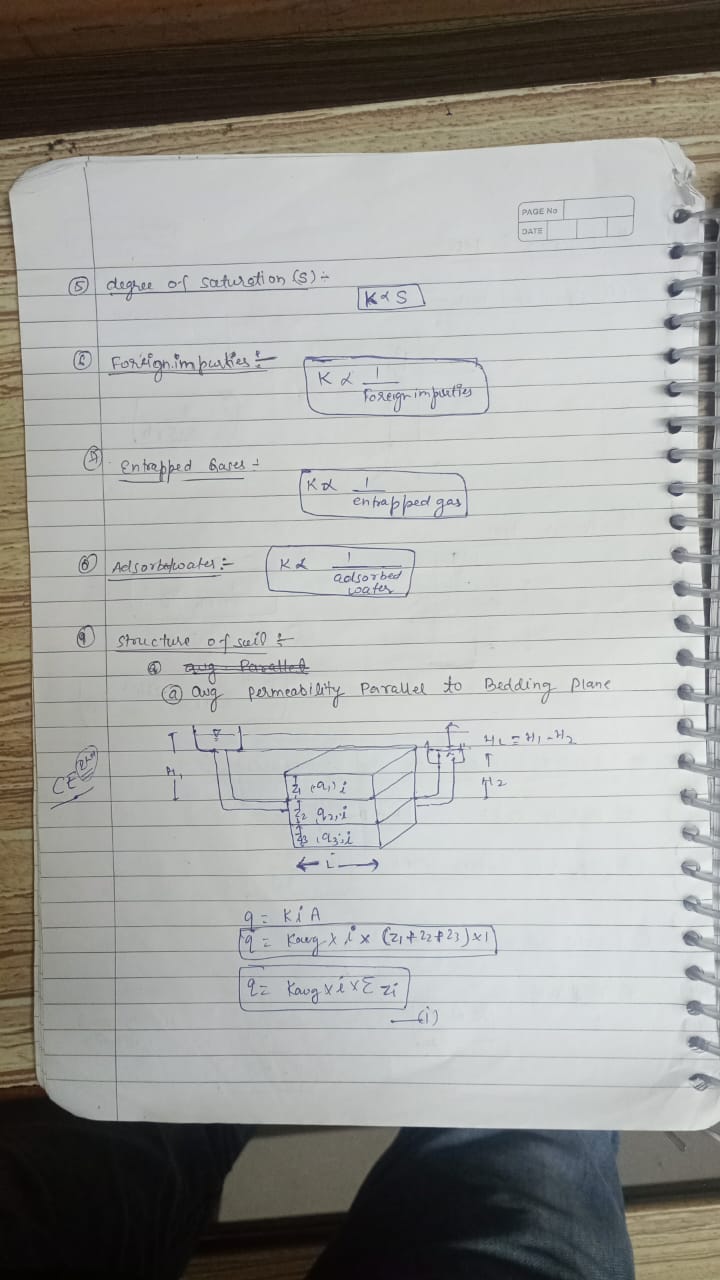 PAGE No
DATE
⑤ degree of saturation (S) :-
K ∝ S
⑥ Foreign impurties :-
K ∝ 1 / Foreign impurties
⑦ Entrapped Gases :-
K ∝ 1 / entrapped gas
⑧ Adsorbed water :-
K ∝ 1 / adsorbed water
⑨ structure of soil :-
ⓐ avg Parallel
ⓐ avg permeability Parallel to Bedding plane
HL = H1 - H2
H1
H2
CE
z1 q1, i
z2 q2, i
z3, q3, i
L
q = K i A
q = Kavg x i x (z1 + z2 + z3) x 1
q = Kavg x i x Σ zi
—(i)